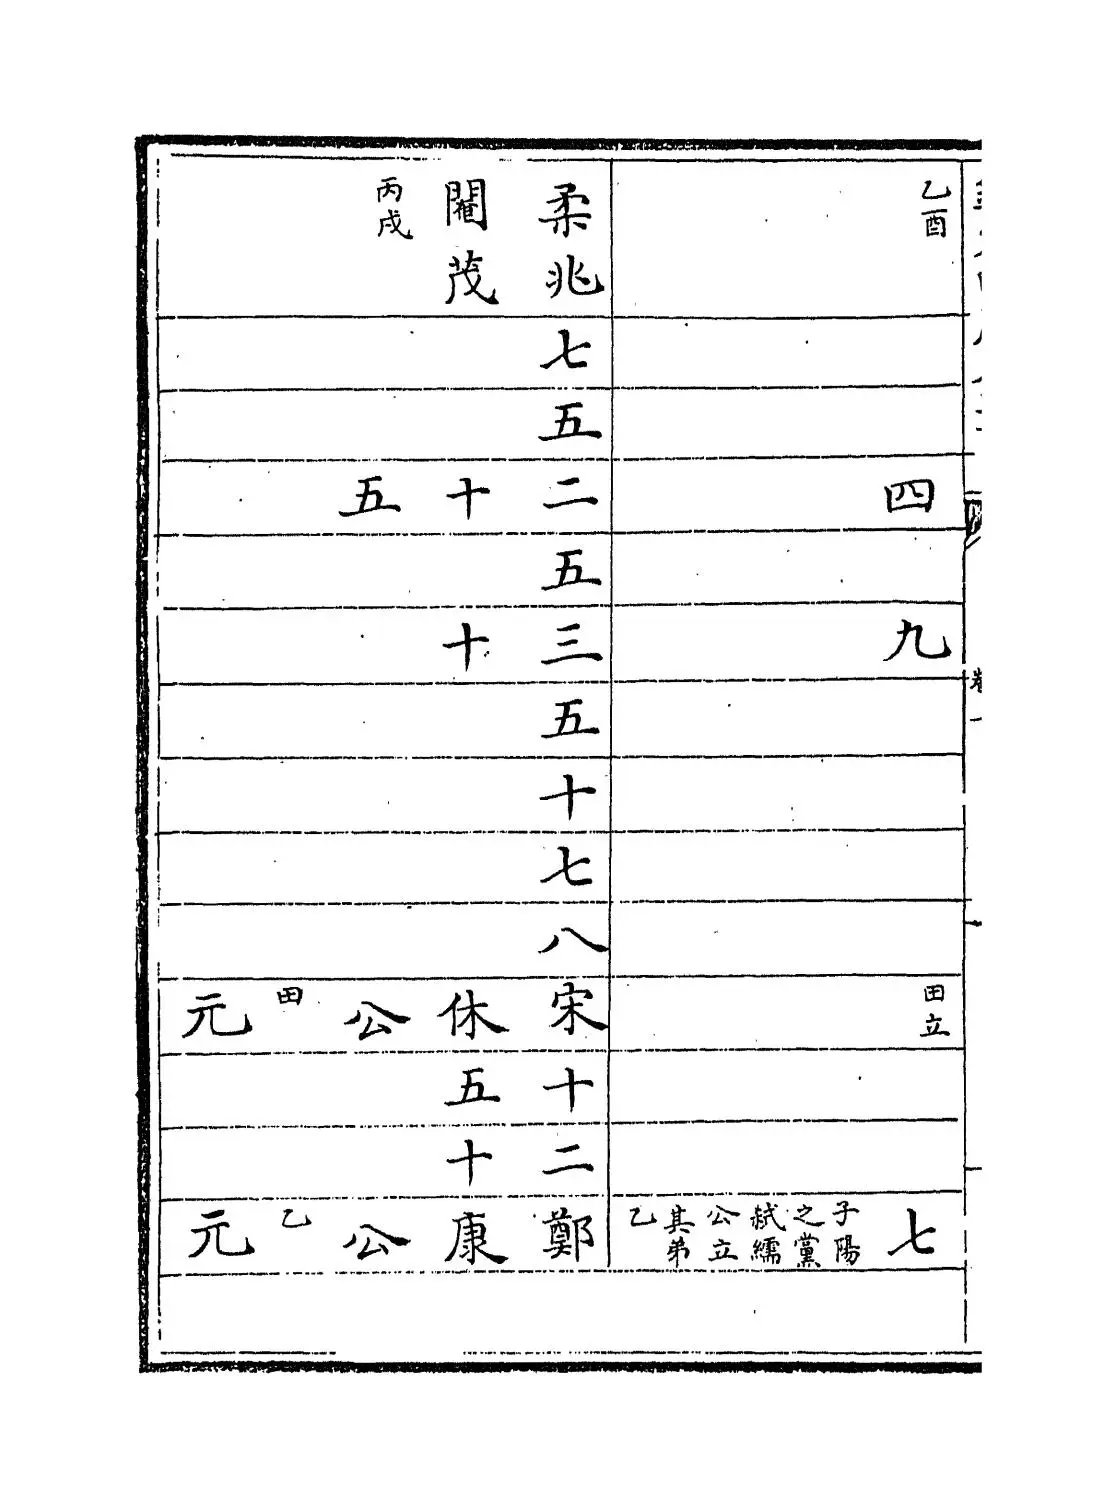 乙酉
四
九
田立
七
子陽
之黨
弑繻
公立
其弟
乙
柔兆
閹茂
丙戌
七
五
二十五
五
三十
五
十
七
八
宋休公田元
十五
二十
鄭康公乙元